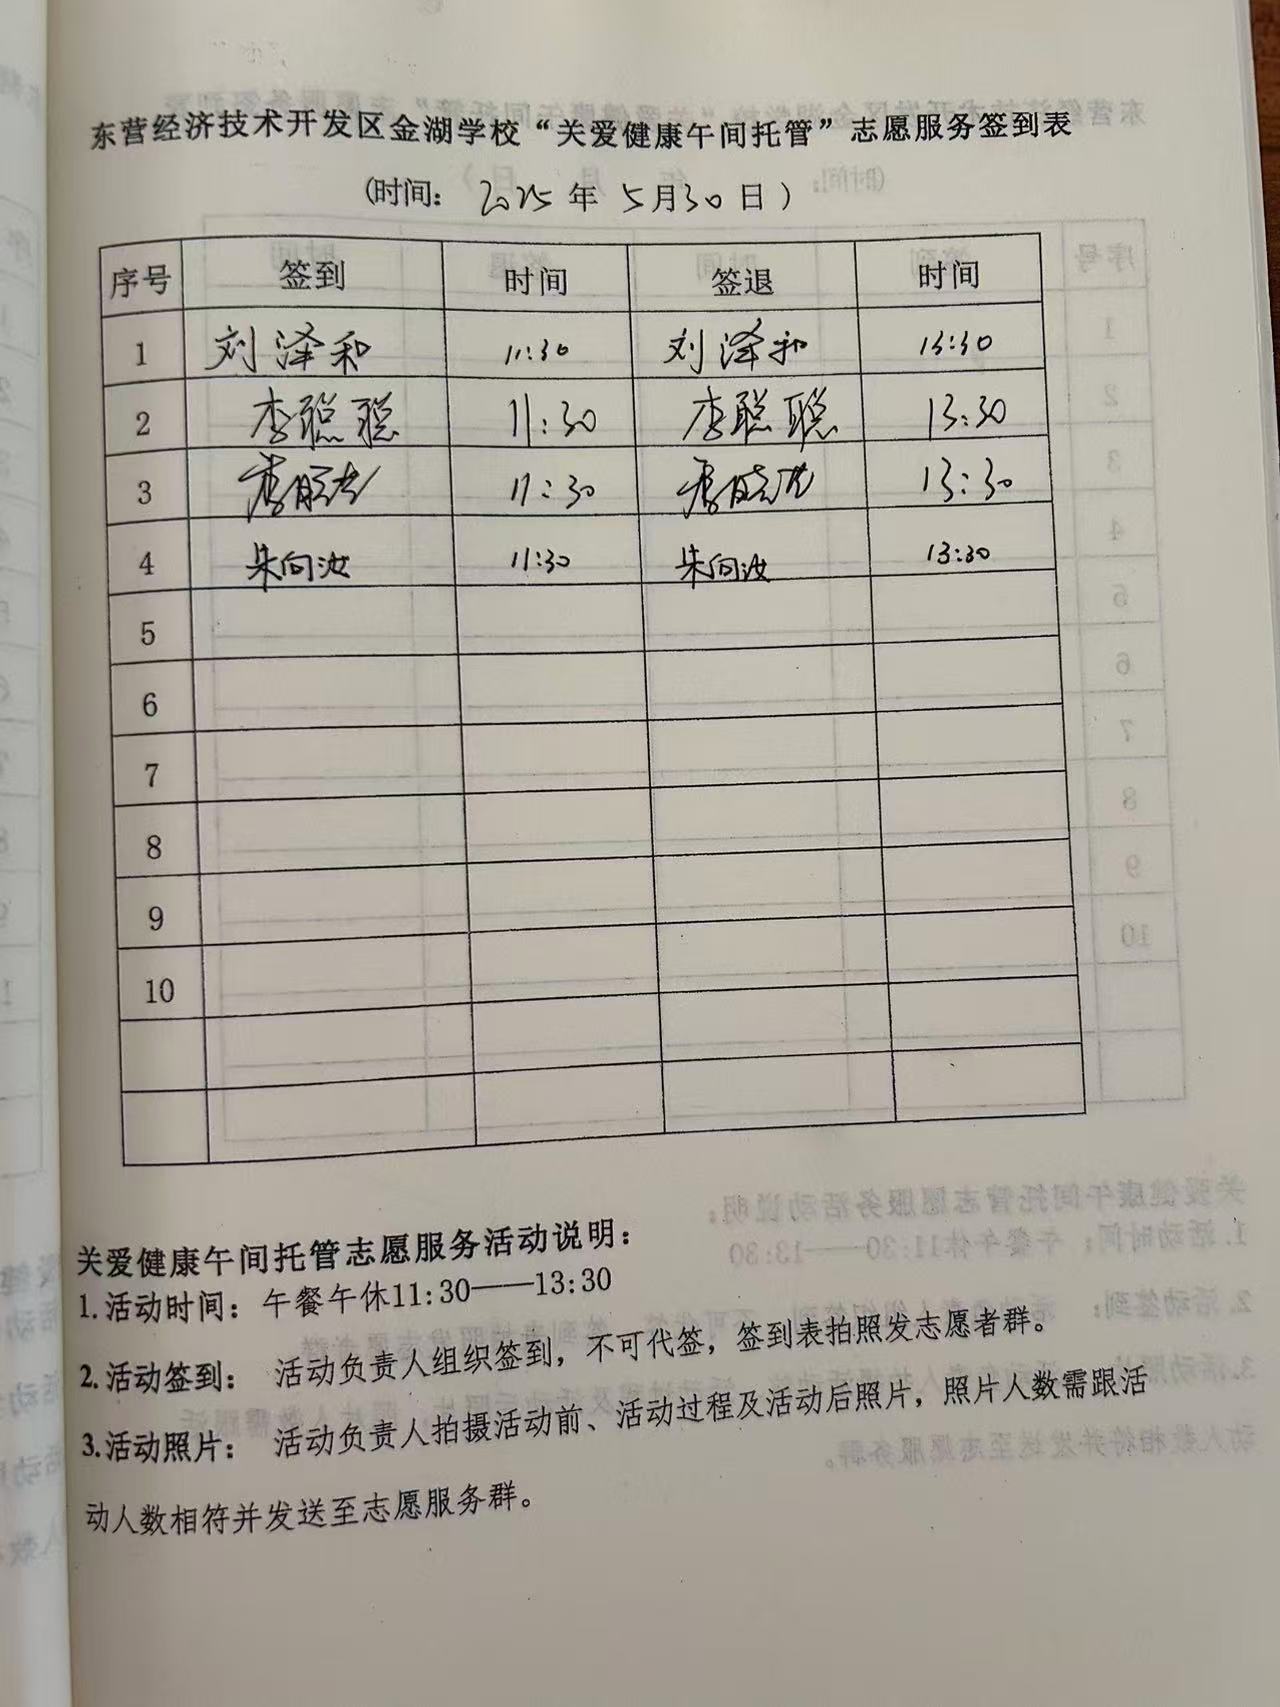 东营经济技术开发区金湖学校“关爱健康午间托管”志愿服务签到表
(时间: 2025 年 5月30日)
序号 签到 时间 签退 时间
1 刘泽和 11:30 刘泽和 13:30
2 李聪聪 11:30 李聪聪 13:30
3 11:30 13:30
4 朱向汝 11:30 朱向汝 13:30
5
6
7
8
9
10
关爱健康午间托管志愿服务活动说明:
1.活动时间: 午餐午休11:30——13:30
2.活动签到: 活动负责人组织签到,不可代签,签到表拍照发志愿者群。
3.活动照片: 活动负责人拍摄活动前、活动过程及活动后照片,照片人数需跟活
动人数相符并发送至志愿服务群。